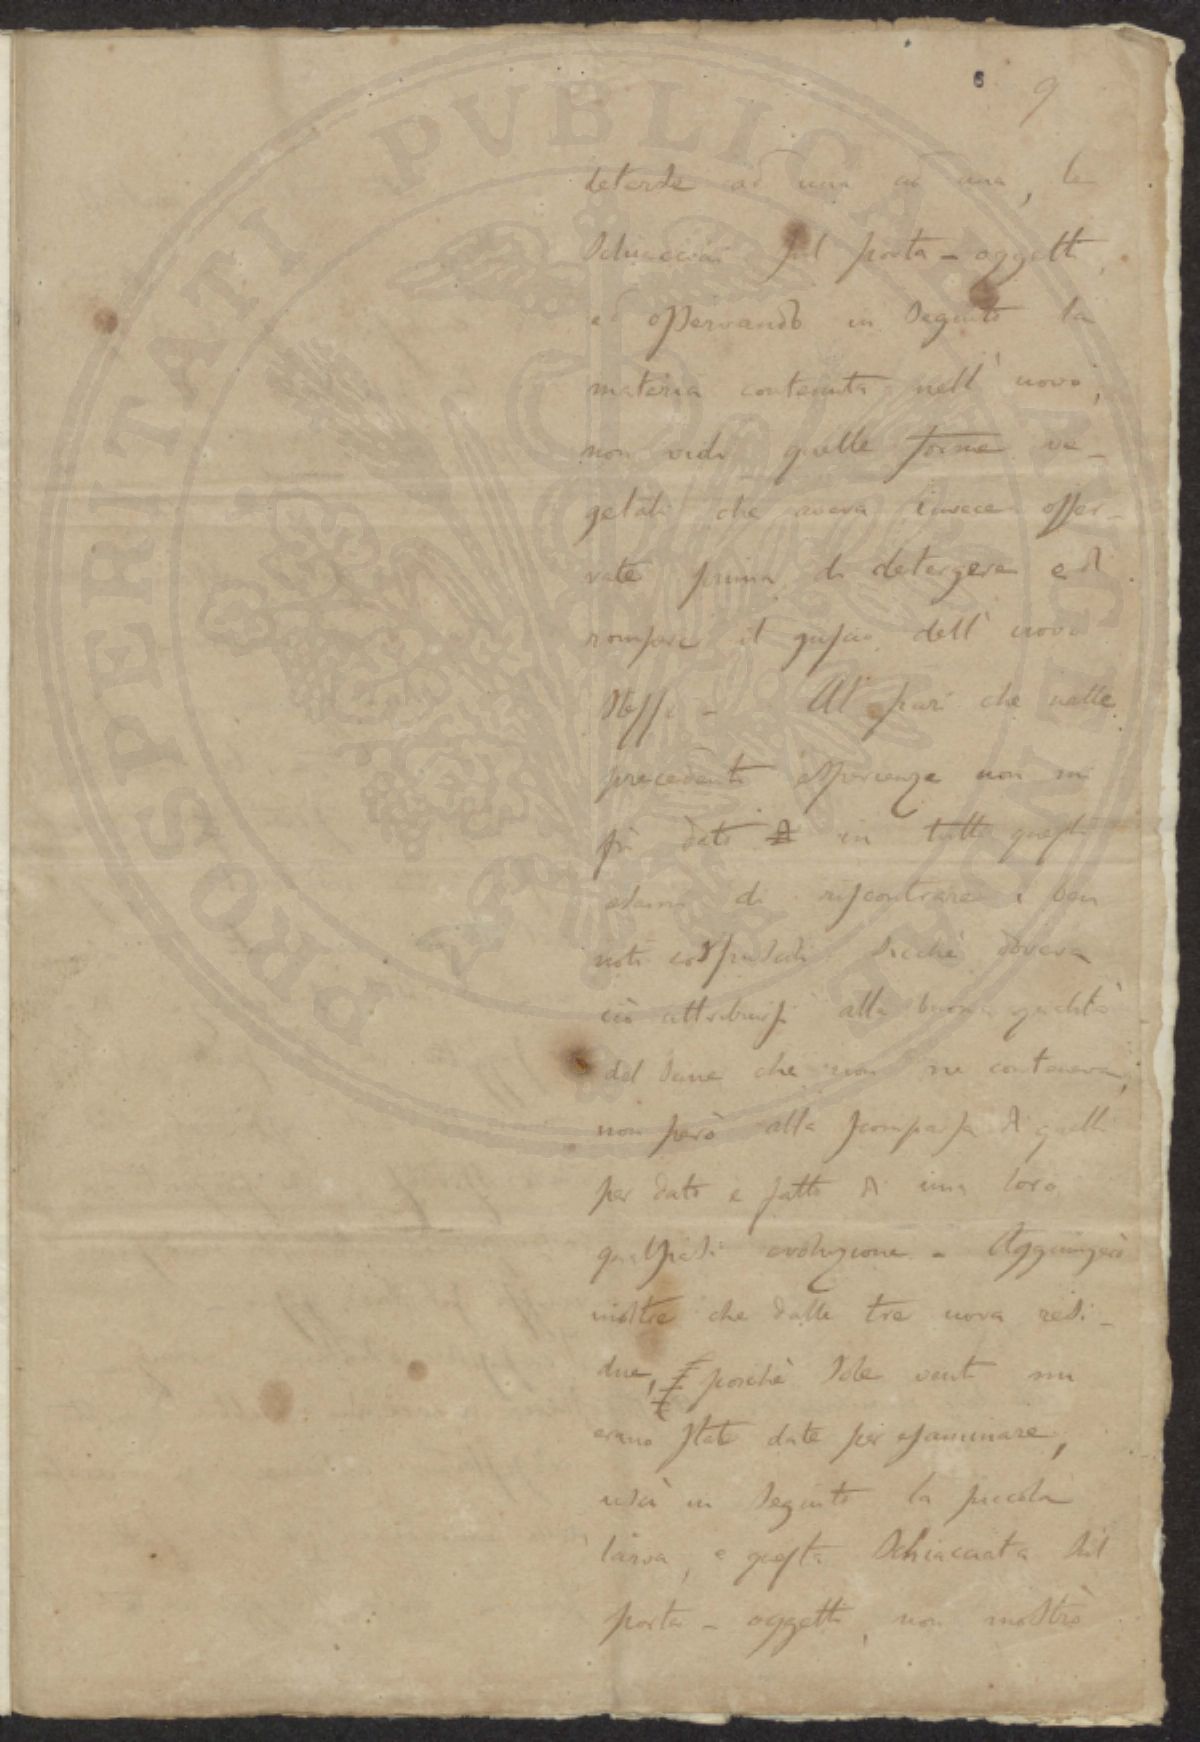 9
deterse ad una ad una, le
schiacciai sul porta-oggetti,
ed osservando in seguito la
materia contenuta nell'uovo,
non vidi quelle forme ve-
getali che aveva invece osser-
vate prima di detergere e di
rompere il guscio dell'uovo
stesso - Al pari che nelle
precedenti esperienze non mi
fu dato in tutti questi
esami di riscontrare i ben
noti corpuscoli sicchè doveva
ciò attribuirsi alla buona qualità
del seme che non ne conteneva,
non però alla scomparsa di quelli
per dato e fatto di una loro
qualsiasi evoluzione - Aggiungerò
inoltre che dalle tre uova resi-
due, poichè sole venti mi
erano state date per esaminare,
uscì in seguito la piccola
larva, e questa schiacciata sul
porta-oggetti, non mostrò
PROSPERITATI PUBLICAE AUGENDAE